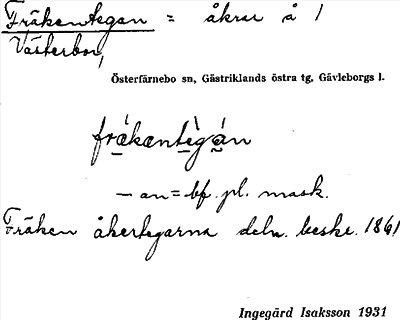 Fräkentegan = åkrar å 1
Västerbor,
Österfärnebo sn, Gästriklands östra tg, Gävleborgs l.
fräkantegan
– an = bf. pl. mask.
Fräken åkertegarna deln. beskr. 1861
Ingegärd Isaksson 1931